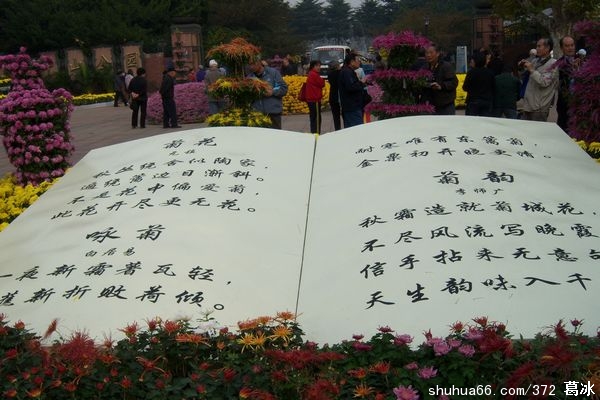 菊花
元稹
秋丛绕舍似陶家，
遍绕篱边日渐斜。
不是花中偏爱菊，
此花开尽更无花。
咏菊
白居易
一夜新霜著瓦轻，
蕉新折败荷倾。
耐寒唯有东篱菊，
金粟初开晓更清。
菊韵
李师广
秋霜造就菊城花，
不尽风流写晓霞
信手拈来无意句
天生韵味入千
shuhua66.com/372 葛冰